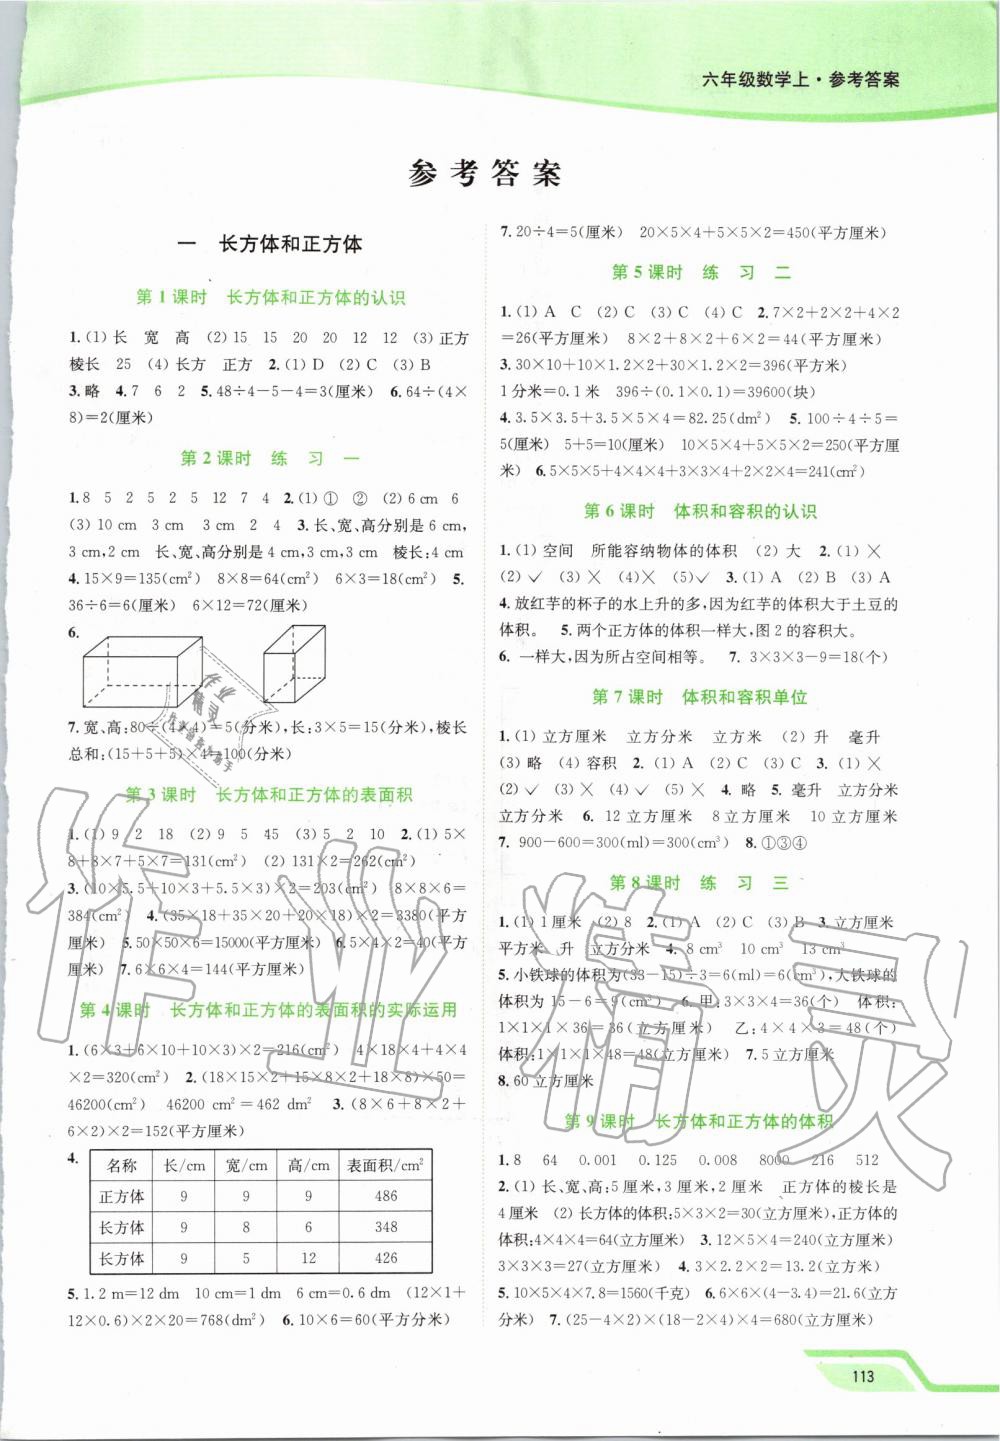 六年级数学上·参考答案
参考答案
一 长方体和正方体
第1课时 长方体和正方体的认识
1.(1)长 宽 高 (2)15 15 20 20 12 12 (3)正方
棱长 25 (4)长方 正方 2.(1)D (2)C (3)B
3.略 4.7 6 2 5.48÷4-5-4=3(厘米) 6.64÷(4×
8)=2(厘米)
第2课时 练 习 一
1.8 5 2 5 2 5 12 7 4 2.(1)① ② (2)6 cm 6
(3)10 cm 3 cm 3 cm 2 4 3.长、宽、高分别是 6 cm,
3 cm,2 cm 长、宽、高分别是 4 cm,3 cm,3 cm 棱长:4 cm
4.15×9=135(cm²) 8×8=64(cm²) 6×3=18(cm²) 5.
36÷6=6(厘米) 6×12=72(厘米)
6.
7.宽、高:80÷(4×4)=5(分米),长:3×5=15(分米),棱长
总和:(15+5+5)×4=100(分米)
第3课时 长方体和正方体的表面积
1.(1)9 2 18 (2)9 5 45 (3)5 2 10 2.(1)5×
8+8×7+5×7=131(cm²) (2)131×2=262(cm²)
3.(10×5.5+10×3+5.5×3)×2=203(cm²) 8×8×6=
384(cm²) 4.(35×18+35×20+20×18)×2=3380(平方
厘米) 5.50×50×6=15000(平方厘米) 6.5×4×2=40(平方
厘米) 7.6×6×4=144(平方厘米)
第4课时 长方体和正方体的表面积的实际运用
1.(6×3+6×10+10×3)×2=216(cm²) 4×18×4+4×4
×2=320(cm²) 2.(18×15×2+15×8×2+18×8)×50=
46200(cm²) 46200 cm²=462 dm² 3.(8×6+8×2+
6×2)×2=152(平方厘米)
4.
名称 长/cm 宽/cm 高/cm 表面积/cm²
正方体 9 9 9 486
长方体 9 8 6 348
长方体 9 5 12 426
5.1.2 m=12 dm 10 cm=1 dm 6 cm=0.6 dm (12×1+
12×0.6)×2×20=768(dm²) 6.10×6=60(平方分米)
7.20÷4=5(厘米) 20×5×4+5×5×2=450(平方厘米)
第5课时 练 习 二
1.(1)A C (2)C (3)C (4)C 2.7×2+2×2+4×2
=26(平方厘米) 8×2+8×2+6×2=44(平方厘米)
3.30×10+10×1.2×2+30×1.2×2=396(平方米)
1分米=0.1米 396÷(0.1×0.1)=39600(块)
4.3.5×3.5+3.5×5×4=82.25(dm²) 5.100÷4÷5=
5(厘米) 5+5=10(厘米) 10×5×4+5×5×2=250(平方厘
米) 6.5×5×5+4×4×4+3×3×4+2×2×4=241(cm²)
第6课时 体积和容积的认识
1.(1)空间 所能容纳物体的体积 (2)大 2.(1)×
(2)✓ (3)× (4)× (5)✓ 3.(1)A (2)B (3)A
4.放红芋的杯子的水上升的多,因为红芋的体积大于土豆的
体积。 5.两个正方体的体积一样大,图2的容积大。
6. 一样大,因为所占空间相等。 7.3×3×3-9=18(个)
第7课时 体积和容积单位
1.(1)立方厘米 立方分米 立方米 (2)升 毫升
(3)略 (4)容积 2.(1)A (2)C (3)C 3.(1)×
(2)✓ (3)× (4)✓ (5)× 4.略 5.毫升 立方分米
立方分米 6.12立方厘米 8立方厘米 10立方厘米
7. 900-600=300(ml)=300(cm³) 8.①③④
第8课时 练 习 三
1.(1)1厘米 (2)8 2.(1)A (2)C (3)B 3.立方厘米
平方米 升 立方分米 4. 8 cm³ 10 cm³ 13 cm³
5.小铁球的体积为(33-15)÷3=6(ml)=6(cm³),大铁球的
体积为15-6=9(cm³) 6.甲:3×3×4=36(个) 体积:
1×1×1×36=36(立方厘米) 乙:4×4×3=48(个)
体积:1×1×1×48=48(立方厘米) 7.5立方厘米
8.60立方厘米
第9课时 长方体和正方体的体积
1.8 64 0.001 0.125 0.008 8000 216 512
2.(1)长、宽、高:5厘米,3厘米,2厘米 正方体的棱长是
4厘米 (2)长方体的体积:5×3×2=30(立方厘米),正方体的
体积:4×4×4=64(立方厘米) 3.12×5×4=240(立方厘米)
3×3×3=27(立方厘米) 4.3×2.2×2=13.2(立方米)
5.10×5×4×7.8=1560(千克) 6.6×6×(4-3.4)=21.6(立方
分米) 7.(25-4×2)×(18-2×4)×4=680(立方厘米)
113
作业精灵